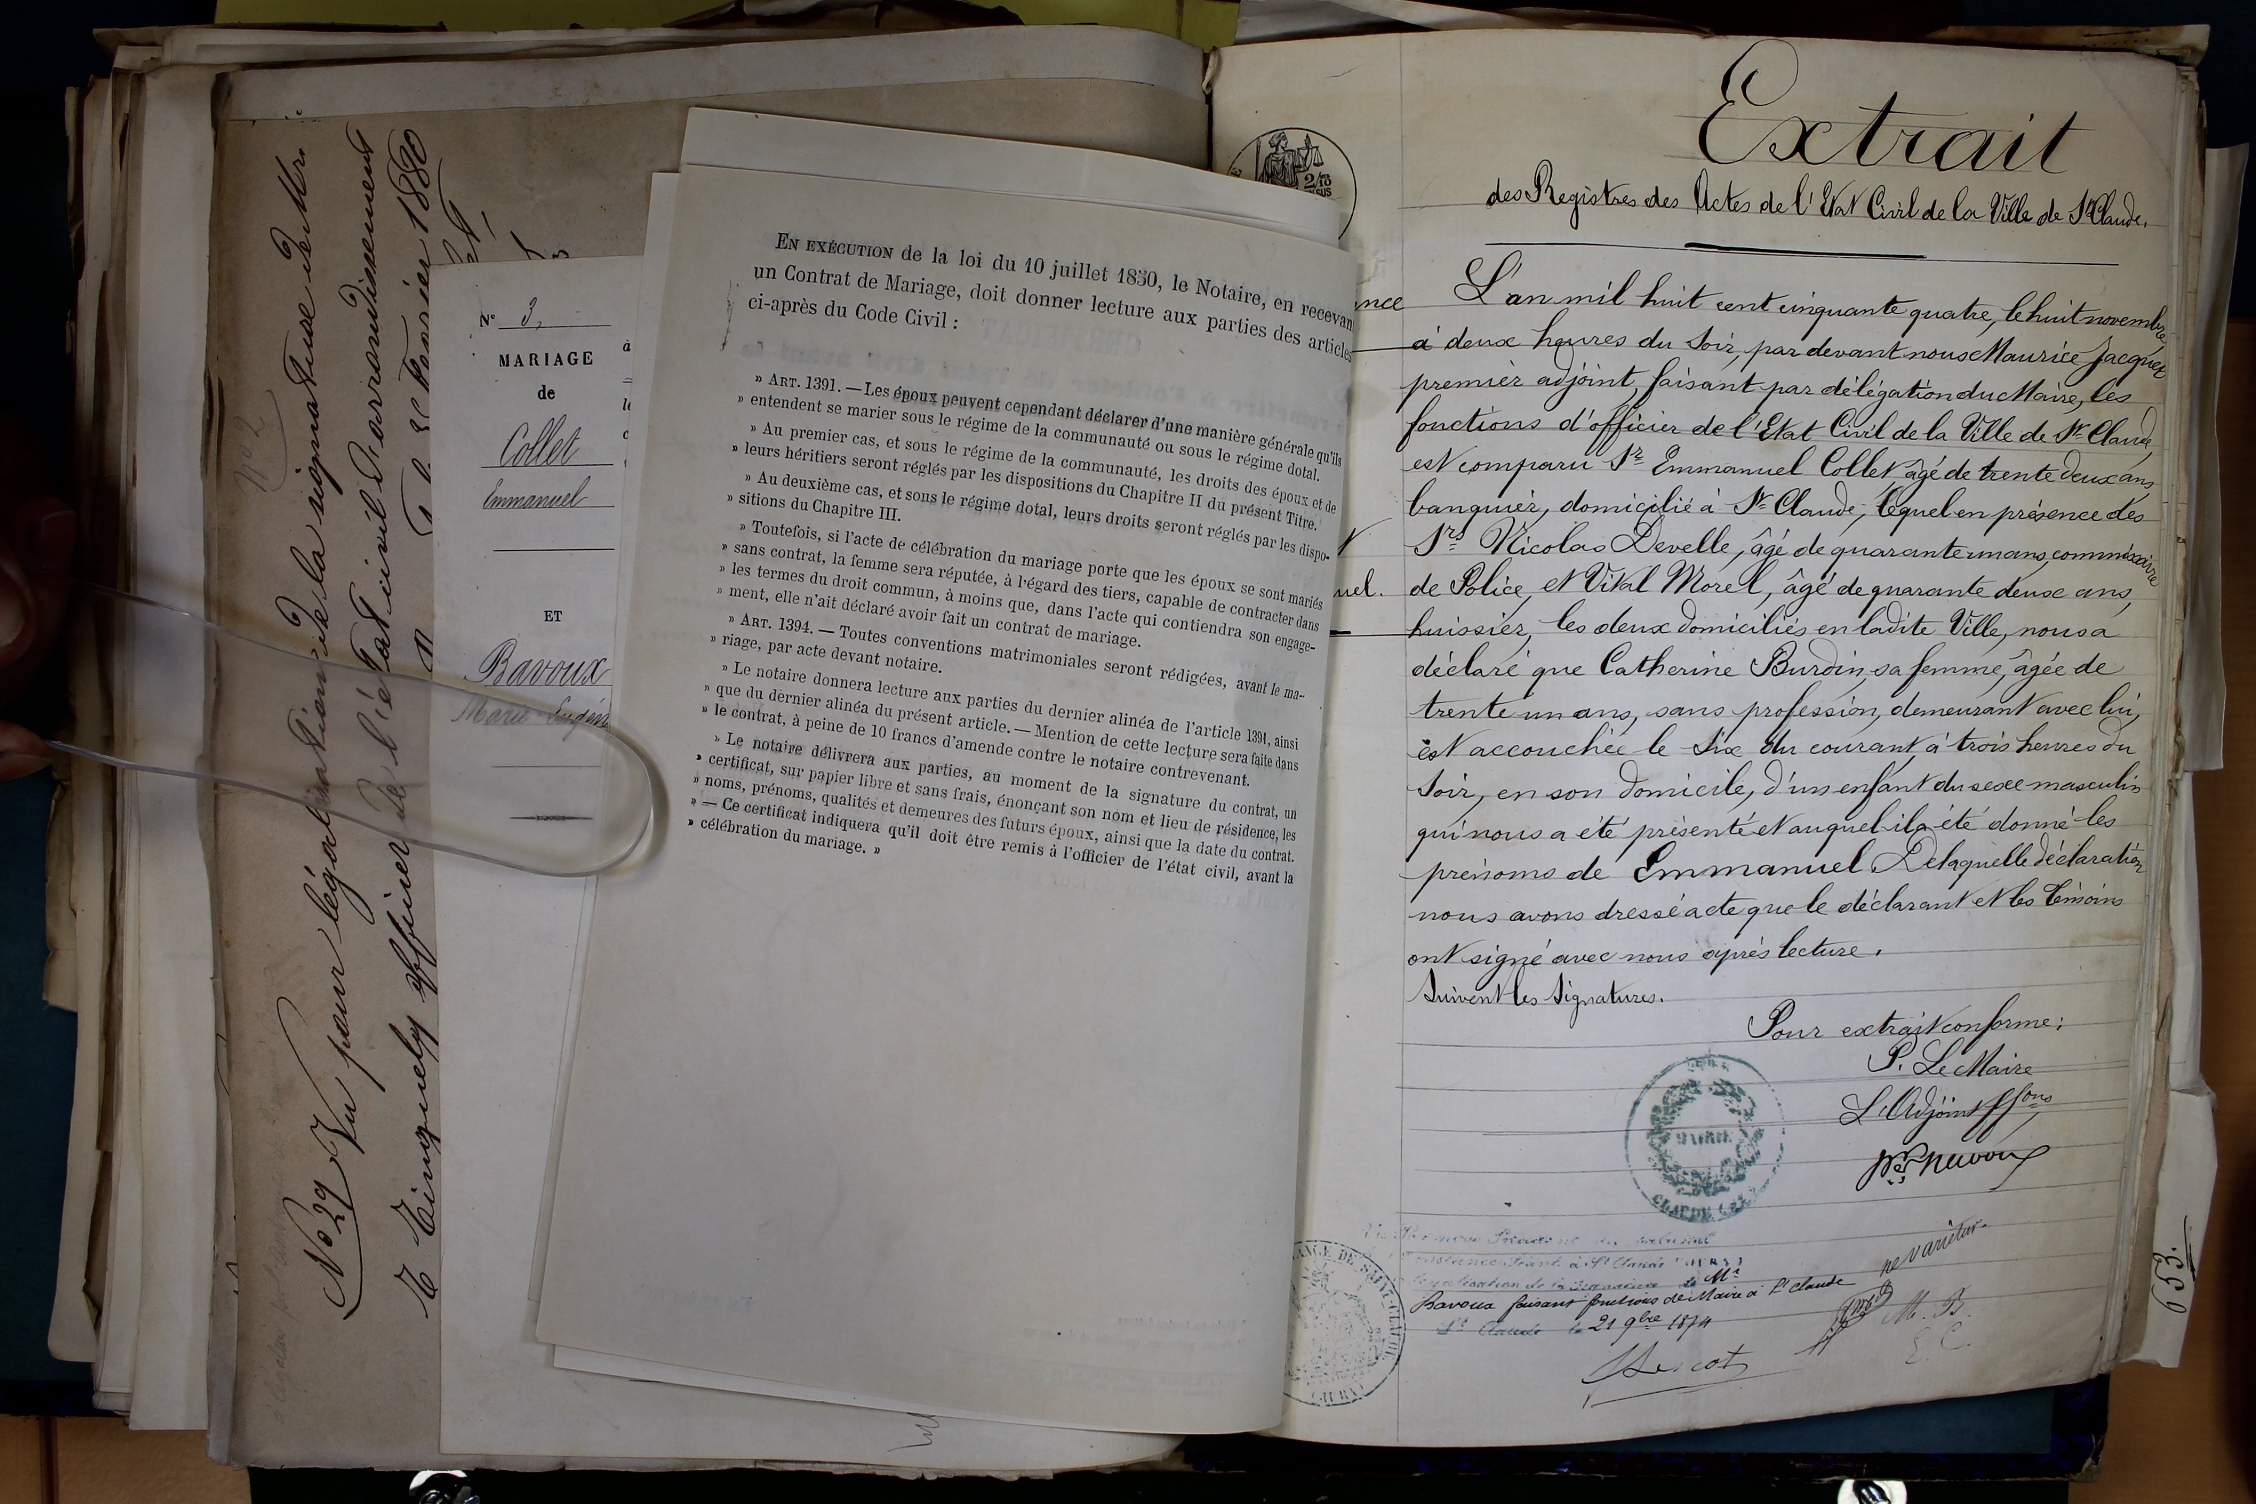 Nº 2
Nº 29 Vu pour légalisation de la signature de Mr.
officier de l'état civil d'arrondissement
Février 1880
Nº 3,
MARIAGE
de
Collet
Emmanuel
ET
Bavoux
Marie-Eugén
EN EXÉCUTION de la loi du 10 juillet 1850, le Notaire, en recevan
un Contrat de Mariage, doit donner lecture aux parties des articles
ci-après du Code Civil :
» ART. 1391. — Les époux peuvent cependant déclarer d'une manière générale qu'ils
» entendent se marier sous le régime de la communauté ou sous le régime dotal.
» Au premier cas, et sous le régime de la communauté, les droits des époux et de
» leurs héritiers seront réglés par les dispositions du Chapitre II du présent Titre.
» Au deuxième cas, et sous le régime dotal, leurs droits seront réglés par les dispo-
» sitions du Chapitre III.
» Toutefois, si l'acte de célébration du mariage porte que les époux se sont mariés
» sans contrat, la femme sera réputée, à l'égard des tiers, capable de contracter dans
» les termes du droit commun, à moins que, dans l'acte qui contiendra son engage-
» ment, elle n'ait déclaré avoir fait un contrat de mariage.
» ART. 1394. — Toutes conventions matrimoniales seront rédigées, avant le ma-
» riage, par acte devant notaire.
» Le notaire donnera lecture aux parties du dernier alinéa de l'article 1391, ainsi
» que du dernier alinéa du présent article. — Mention de cette lecture sera faite dans
» le contrat, à peine de 10 francs d'amende contre le notaire contrevenant.
» Le notaire délivrera aux parties, au moment de la signature du contrat, un
» certificat, sur papier libre et sans frais, énonçant son nom et lieu de résidence, les
» noms, prénoms, qualités et demeures des futurs époux, ainsi que la date du contrat.
» — Ce certificat indiquera qu'il doit être remis à l'officier de l'état civil, avant la
» célébration du mariage. »
Extrait
des Registres des Actes de l'Etat Civil de la Ville de St Claude.
L'an mil huit cent cinquante quatre, le huit novembre
à deux heures du soir, par devant nous Maurice Jacquet
premier adjoint, faisant par délégation du Maire, les
fonctions d'officier de l'Etat Civil de la Ville de St Claude
est comparu Sr Emmanuel Collet âgé de trente deux ans,
banquier, domicilié à St Claude, lequel en présence des
Srs Nicolas Develle, âgé de quarante un ans, commissaire
de Police, et Vital Morel, âgé de quarante deux ans,
huissier, les deux domiciliés en ladite Ville, nous a
déclaré que Catherine Burdin, sa femme, âgée de
trente un ans, sans profession, demeurant avec lui,
est accouchée le six du courant, à trois heures du
soir, en son domicile, d'un enfant du sexe masculin
qui nous a été présenté et auquel il a été donné les
prénoms de Emmanuel De laquelle déclaration
nous avons dressé acte que le déclarant et les témoins
ont signé avec nous après lecture.
Suivent les signatures.
Pour extrait conforme:
P. Le Maire
L'Adjoint ff ons
MAIRIE
de la signature de Mr
Bavoux faisant fonctions de Maire à St Claude
St Claude le 21 9bre 1874
ne varietur
M. B.
E. C.
653.